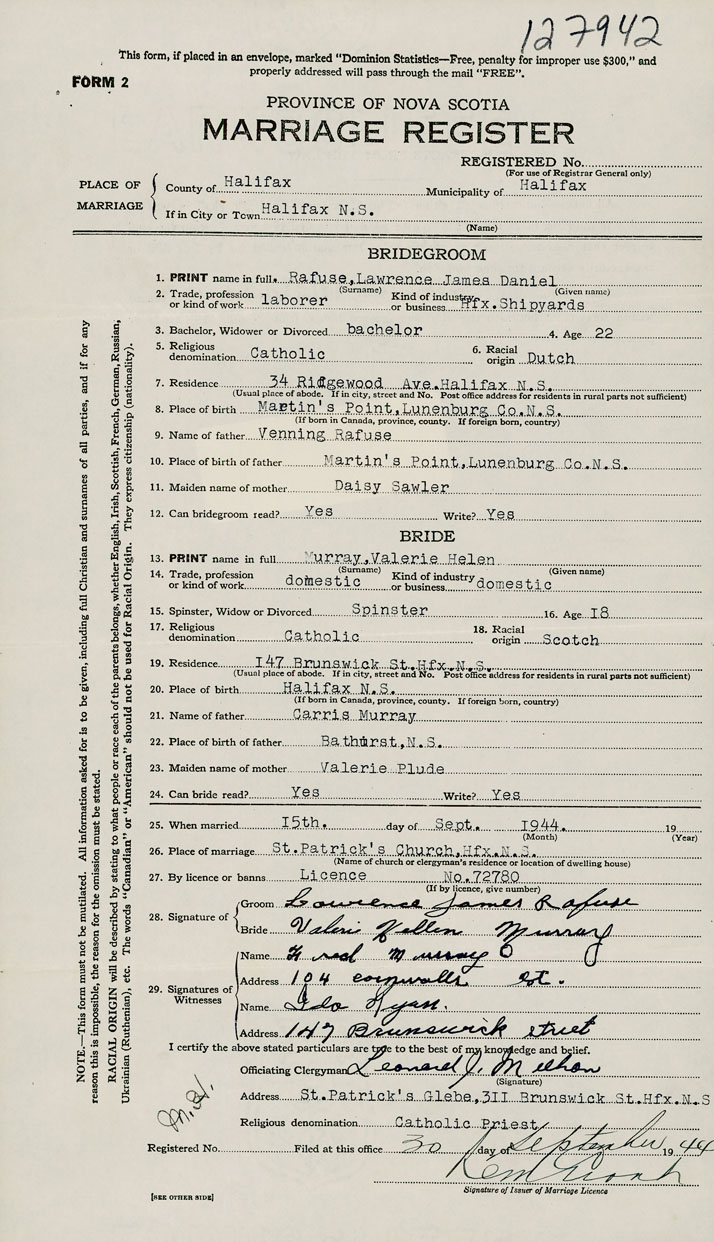 127942
This form, if placed in an envelope, marked "Dominion Statistics—Free, penalty for improper use $300," and
properly addressed will pass through the mail "FREE".
FORM 2
PROVINCE OF NOVA SCOTIA
MARRIAGE REGISTER
REGISTERED No.
(For use of Registrar General only)
PLACE OF MARRIAGE
County of Halifax Municipality of Halifax
If in City or Town Halifax N.S.
(Name)
BRIDEGROOM
1. PRINT name in full. Rafuse,Lawrence James Daniel
(Surname) (Given name)
2. Trade, profession or kind of work laborer Kind of industry or business Hfx.Shipyards
3. Bachelor, Widower or Divorced bachelor 4. Age 22
5. Religious denomination Catholic 6. Racial origin Dutch
7. Residence 34 Ridgewood Ave.Halifax N.S.
(Usual place of abode. If in city, street and No. Post office address for residents in rural parts not sufficient)
8. Place of birth Martin's Point,Lunenburg Co.N.S.
(If born in Canada, province, county. If foreign born, country)
9. Name of father Venning Rafuse
10. Place of birth of father Martin's Point,Lunenburg Co.N.S.
11. Maiden name of mother Daisy Sawler
12. Can bridegroom read? Yes Write? Yes
BRIDE
13. PRINT name in full Murray,Valerie Helen
(Surname) (Given name)
14. Trade, profession or kind of work domestic Kind of industry or business domestic
15. Spinster, Widow or Divorced Spinster 16. Age I8
17. Religious denomination Catholic 18. Racial origin Scotch
19. Residence I47 Brunswick St.Hfx.N.S.
(Usual place of abode. If in city, street and No. Post office address for residents in rural parts not sufficient)
20. Place of birth Halifax N.S.
(If born in Canada, province, county. If foreign born, country)
21. Name of father Carris Murray
22. Place of birth of father Bathurst,N.S.
23. Maiden name of mother Valerie Plude
24. Can bride read? Yes Write? Yes
25. When married I5th. day of Sept. I944. 19
(Month) (Year)
26. Place of marriage St.Patrick's Church,Hfx.N.S.
(Name of church or clergyman's residence or location of dwelling house)
27. By licence or banns Licence No.72780
(If by licence, give number)
28. Signature of
Groom Lawrence James Rafuse
Bride Valerie Hellen Murray
29. Signatures of Witnesses
Name Fred Murray
Address 104 cornwalls st.
Name Ida Ryan.
Address 147 Brunswick street
I certify the above stated particulars are true to the best of my knowledge and belief.
Officiating Clergyman Leonard J.
(Signature)
Address St.Patrick's Glebe,3II Brunswick St.Hfx.N.S
Religious denomination Catholic Priest
Registered No. Filed at this office 30 day of September 19 44
Signature of Issuer of Marriage Licence
[SEE OTHER SIDE]
NOTE.—This form must not be mutilated. All information asked for is to be given, including full Christian and surnames of all parties, and if for any
reason this is impossible, the reason for the omission must be stated.
RACIAL ORIGIN will be described by stating to what people or race each of the parents belongs, whether English, Irish, Scottish, French, German, Russian,
Ukrainian (Ruthenian), etc. The words "Canadian" or "American" should not be used for Racial Origin. They express citizenship (nationality).